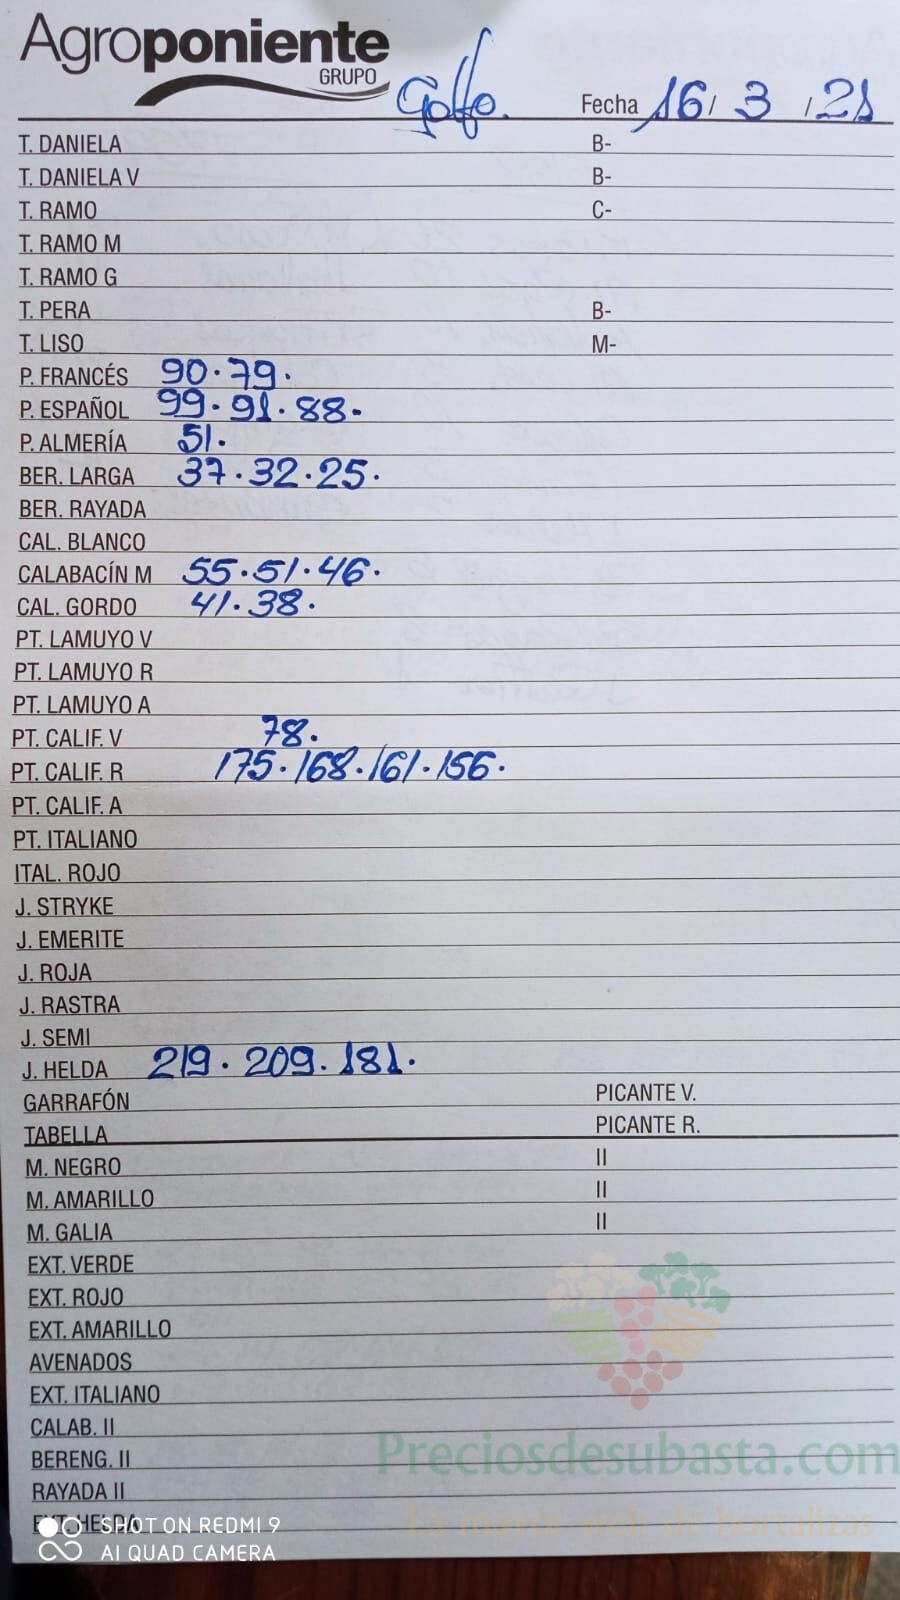 Agroponiente
GRUPO
Golfo. Fecha 16/ 3 /21
T. DANIELA B-
T. DANIELA V B-
T. RAMO C-
T. RAMO M
T. RAMO G
T. PERA B-
T. LISO M-
P. FRANCÉS 90·79.
P. ESPAÑOL 99·91·88.
P. ALMERÍA 51.
BER. LARGA 37·32·25.
BER. RAYADA
CAL. BLANCO
CALABACÍN M 55·51·46.
CAL. GORDO 41·38.
PT. LAMUYO V
PT. LAMUYO R
PT. LAMUYO A
PT. CALIF. V 78.
PT. CALIF. R 175·168·161·156.
PT. CALIF. A
PT. ITALIANO
ITAL. ROJO
J. STRYKE
J. EMERITE
J. ROJA
J. RASTRA
J. SEMI
J. HELDA 219·209·181.
GARRAFÓN PICANTE V.
TABELLA PICANTE R.
M. NEGRO II
M. AMARILLO II
M. GALIA II
EXT. VERDE
EXT. ROJO
EXT. AMARILLO
AVENADOS
EXT. ITALIANO
CALAB. II
BERENG. II
Preciosdesubasta.com
RAYADA II
EXT. HELDA
La mayor web de hortalizas
SHOT ON REDMI 9
AI QUAD CAMERA